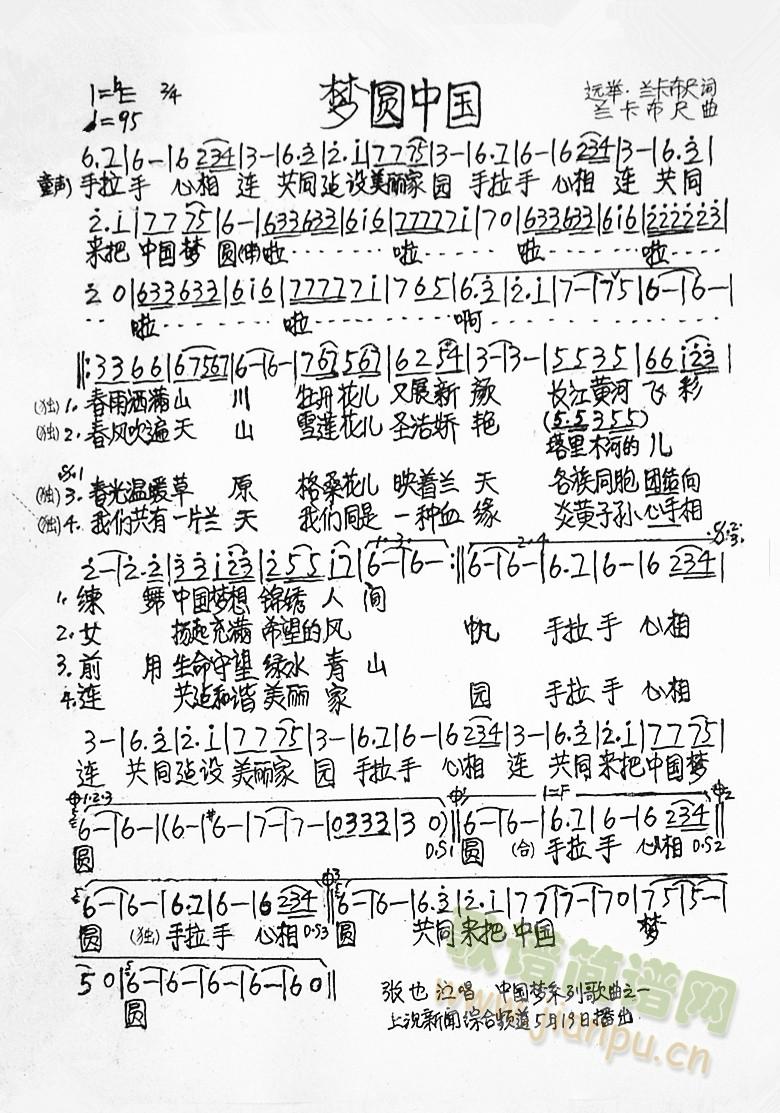 1=♭E 2/4
♩=95
梦圆中国
远举·兰卡布尺词
兰卡布尺曲
6.7|6-|6 234|3-|6.3|2.1|7 7 75|3-|6.7|6-|6 234|3-|6.3|
童声) 手拉手 心相 连 共同 建设美丽家 园 手拉手 心相 连 共同
2.1|7 7 75|6-|633633|6i6|77777i|70|633633|6i6|222223|
来把 中国梦 圆(伴)啦…… 啦…… 啦…… 啦……
2 0|633633|6i6|77777i|765|6.3|2.1|7-|75|6-|6-|
啦…… 啦…… 啊……
||:3366|67567|6-|6-|767567|62 54|3-|3-|5535|66i23|
(独) 1. 春雨洒满山 川 牡丹花儿 又展新 颜 长江黄河 飞 彩
(独) 2. 春风吹遍天 山 雪莲花儿 圣洁娇 艳 (5.5355)
塔里木河的 儿
(独) 3. 春光温暖草 原 格桑花儿 映着兰 天 各族同胞 团结向
(独) 4. 我们共有一片兰 天 我们同是 一种血 缘 炎黄子孙 心手相
2-|2.2|33i23|255|i7|6-|6-:||6-|6-|6.7|6-|6 234|
1. 练 舞 中国梦想 锦绣 人 间
2. 女 扬起充满 希望的风 帆 手拉手 心相
3. 前 用 生命守望 绿水 青 山
4. 连 共建和谐 美丽 家 园 手拉手 心相
3-|6.3|2.1|7 7 75|3-|6.7|6-|6 234|3-|6.3|2.1|7 7 75|
连 共同 建设 美丽家 园 手拉手 心相 连 共同 来把中国梦
1.2.3
1=F
6-|6-|(6-|#6-|7-|7-|0333|3 0)||6-|6-|6.7|6-|6 234||
圆 D.S1 圆 (合) 手拉手 心相 D.S2
6-|6-|6.7|6-|6 234||6-|6-|6.3|2.1|77|7-|70|75|5-|
圆 (独) 手拉手 心相 D.S3 圆 共同 来把 中国 梦
50|6-|6-|6-|6-|60||
圆
张也演唱 中国梦系列歌曲之一
上视新闻综合频道5月19日播出
歌谱简谱网
www.jianpu.cn